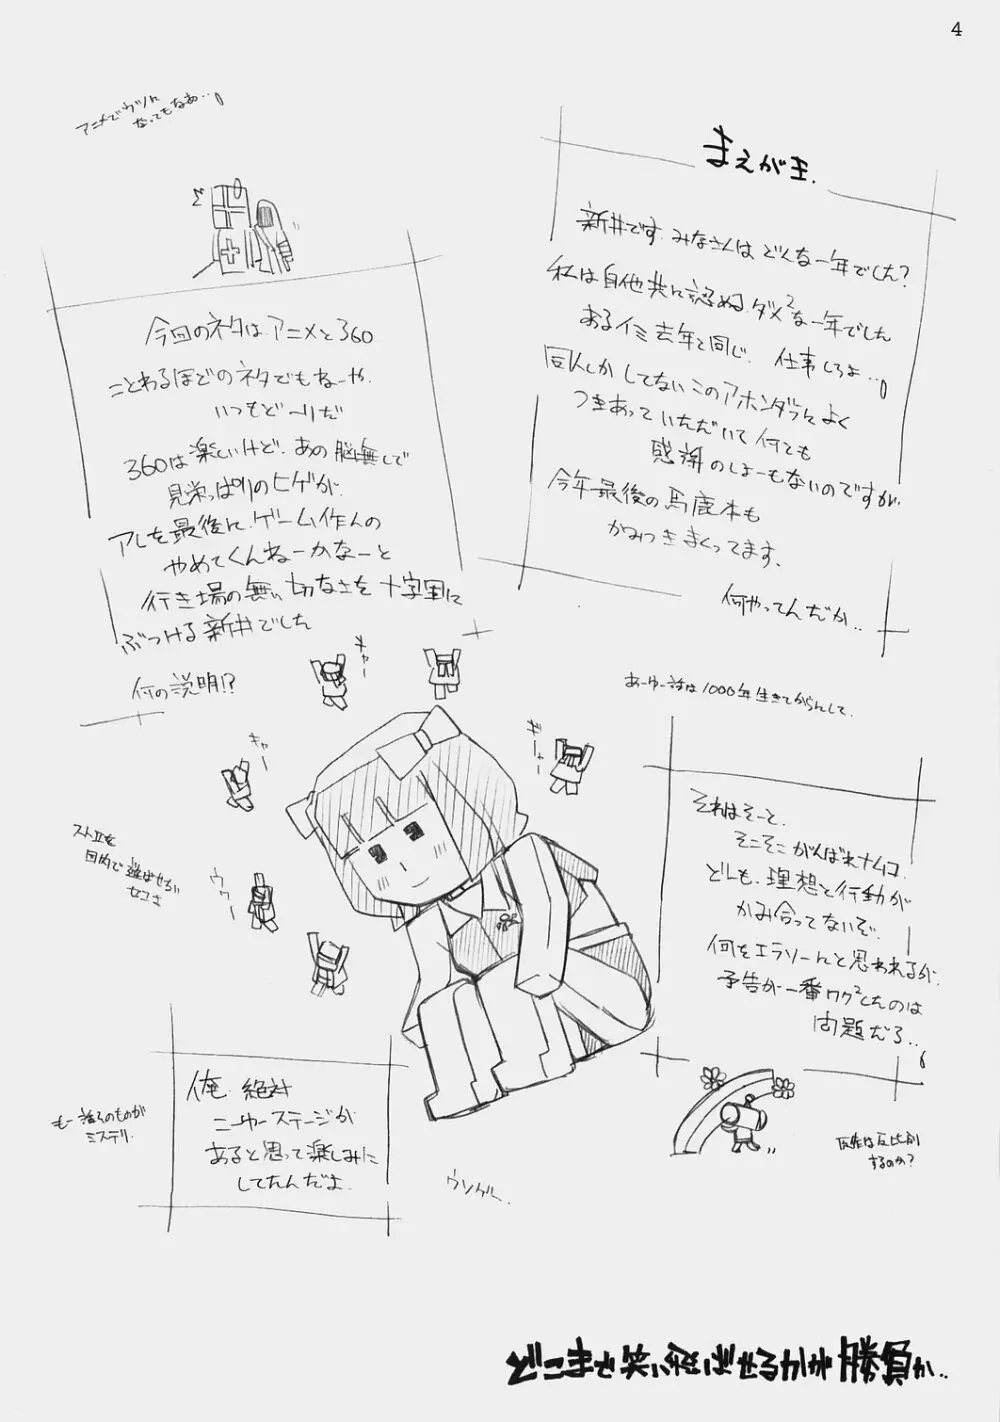 4
まえが王.
新井です. みなさんは どんな一年でした?
私は自他共に認めるダメ²な一年でした
あるイミ去年と同じ. 仕事しろよ…
同人しか してない このアホンダラによく
つきあって いただいて 何とも
感謝のしよーもないのですが.
今年最後の馬鹿本も
かみつきまくってます.
何やってんだか..
アニメでウツに
なってもなあ…
今回のネタは アニメと360
ことわるほどのネタでもねーや.
いつもど〜りだ
360は楽しいけど. あの脳無しで
見栄っぱりのヒゲが.
アレを最後に. ゲーム作んの
やめてくんねーかなーと
行き場の無い切なさを十字軍に
ぶつける新井でした
何の説明!?
キャー
キャー
ギャー
ウゥー
ストIIを
目的で遊ばせる
セコさ
あーゆー話は1000年生きてからんして.
それはそーと.
そこそこ がんばれナムコ.
どーも. 理想と行動が
かみ合ってないぞ.
何をエラソーにと思われるが.
予告が一番ワク²したのは
問題だろ..
俺. 絶対
ニューステージが
あると思って楽しみに
してたんだよ.
もー
ミステリ.
ウソゲー.
反比例
するのか?
どこまで笑い飛ばせるかが勝負か..